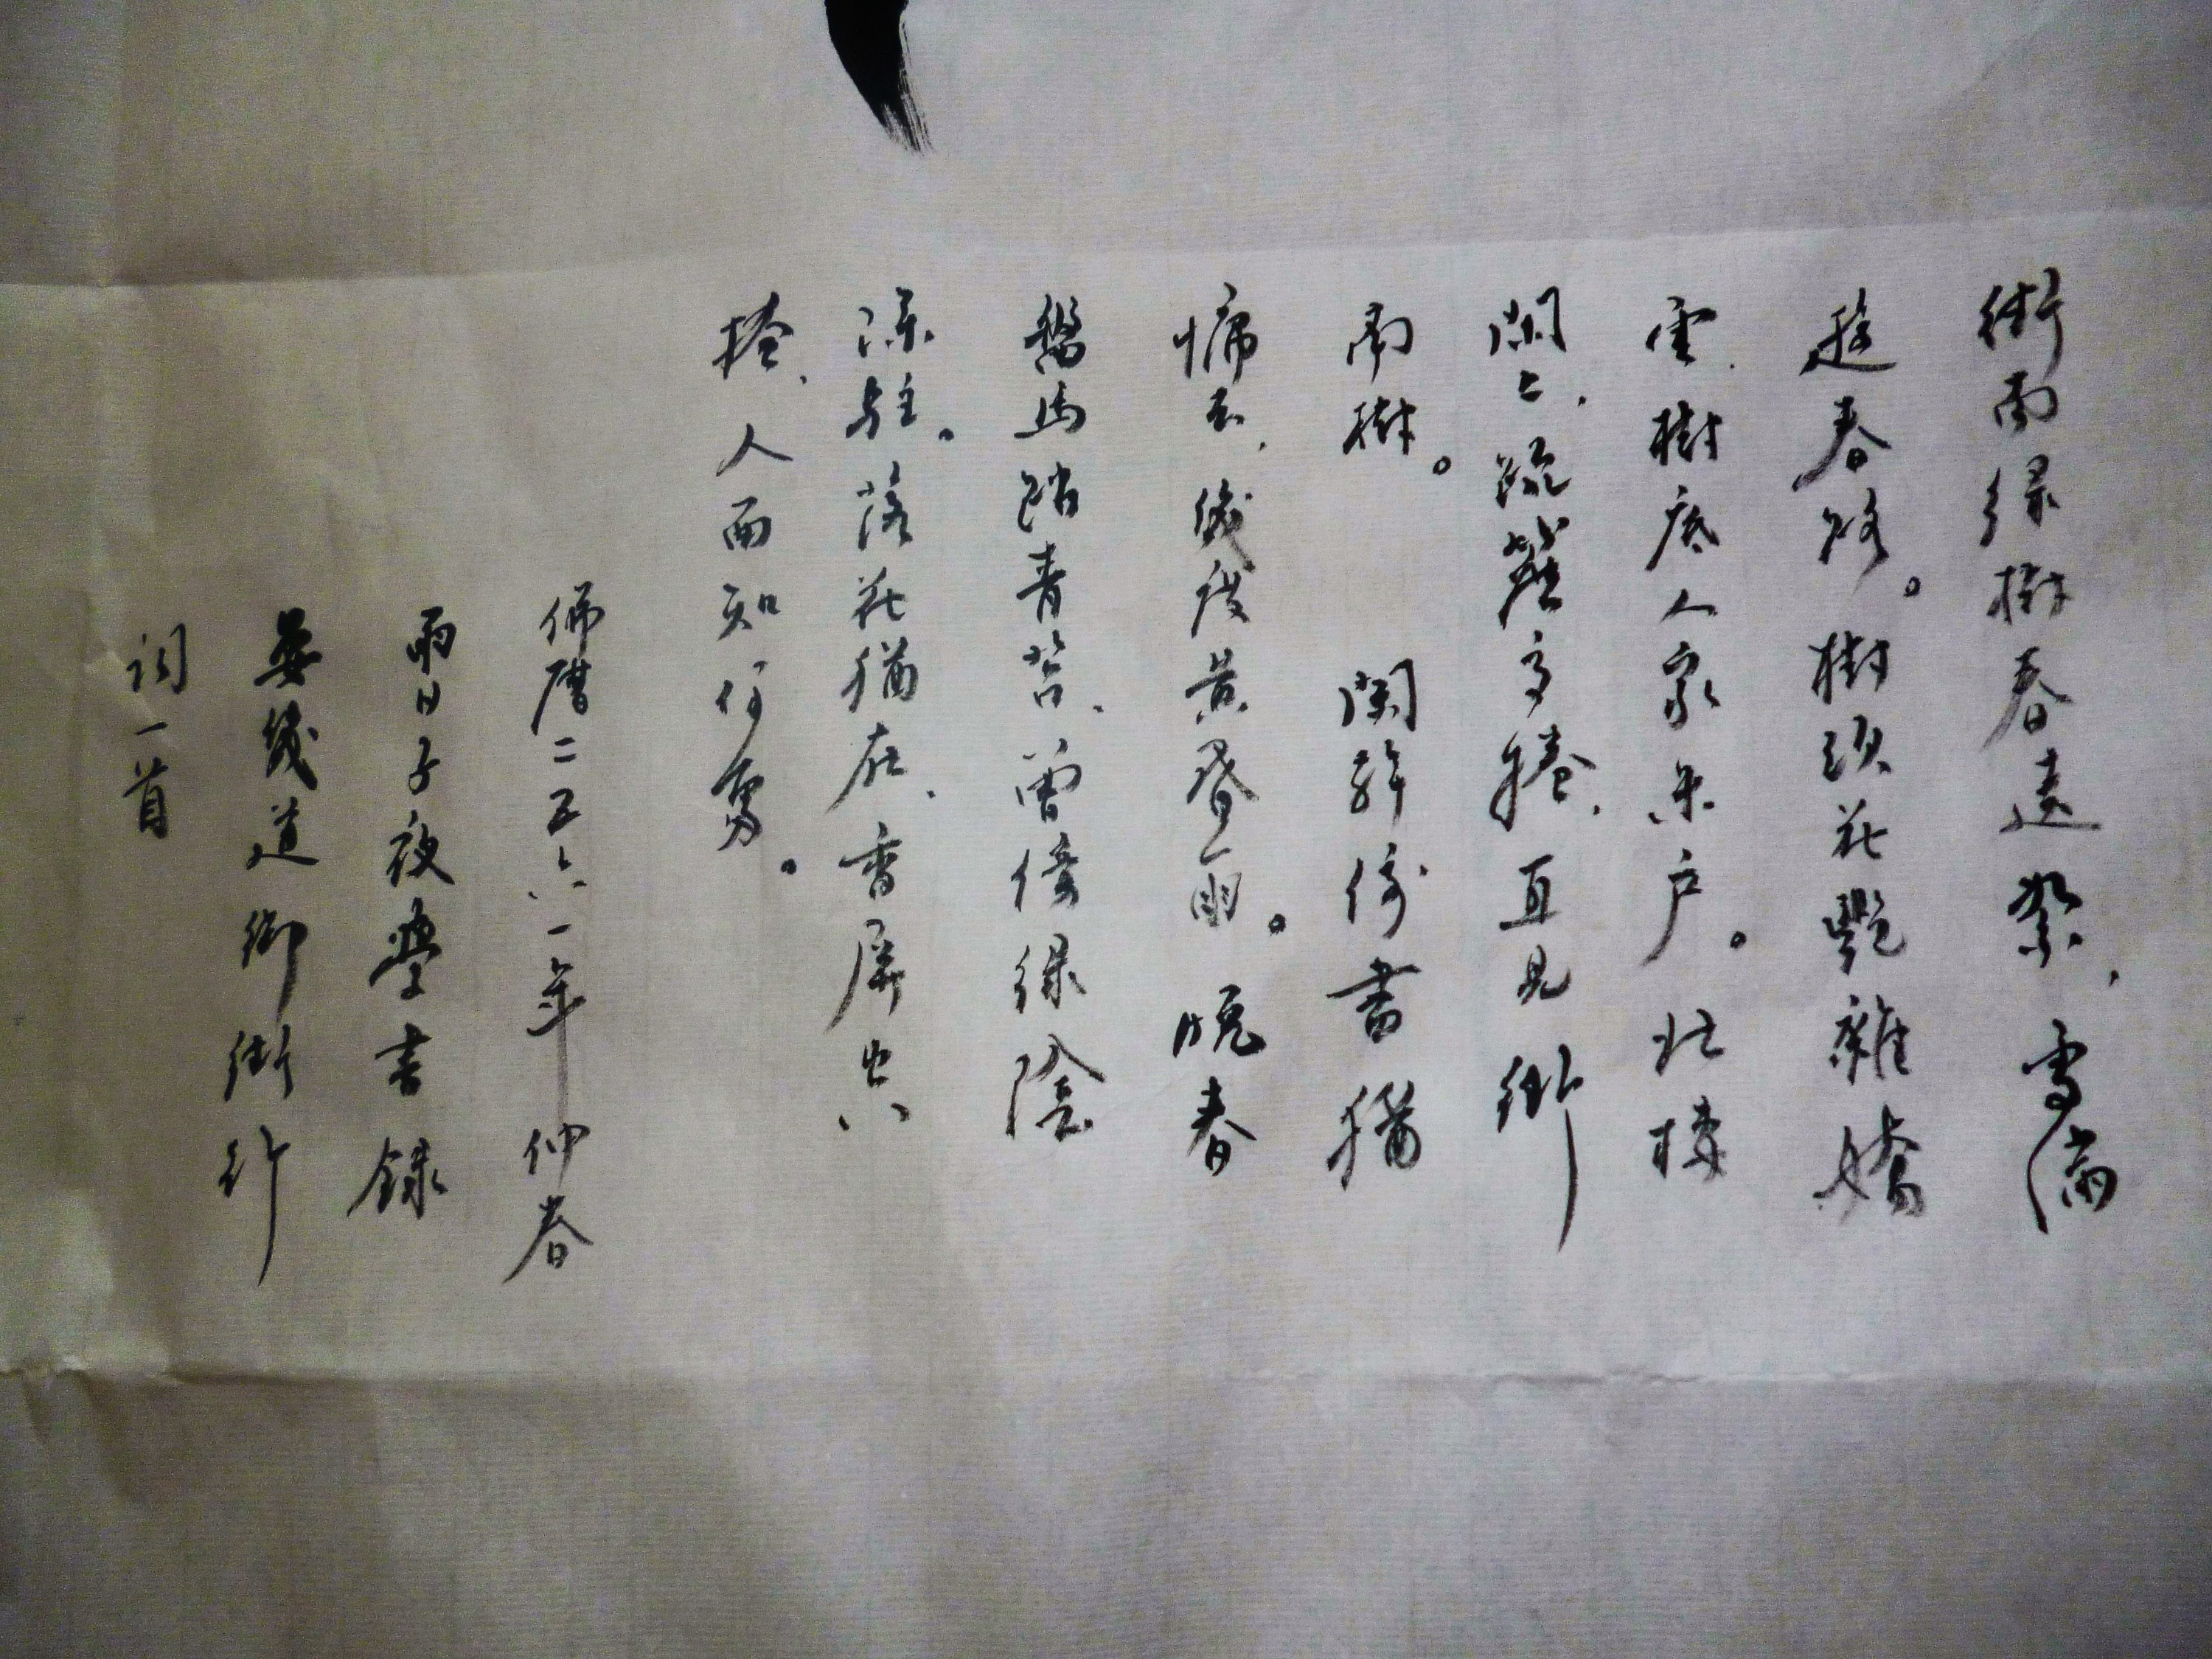 街南綠樹春遶絮、雪滿
遊春路。樹頭花艷雜嬌
雲、樹底人家朱戶。北樓
閒上、疏簾高捲、直見街
南樹。 闌幹倚盡猶
慵去、幾度黃昏雨。晚春
盤馬踏青苔、曾傍綠陰
深駐。落花猶在、香屏空
掩、人面知何處。
佛曆二五六一年 仲春
雨日子夜學書錄
晏幾道御街行
詞一首